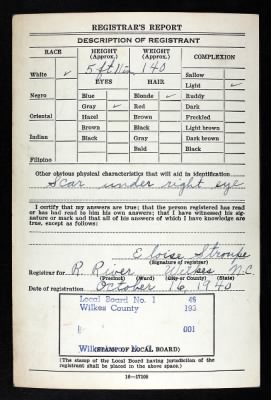 REGISTRAR'S REPORT
DESCRIPTION OF REGISTRANT
RACE HEIGHT (Approx.) WEIGHT (Approx.) COMPLEXION
White ✓ 5 ft 11 in 140 Sallow
EYES HAIR Light ✓
Negro Blue Blonde ✓ Ruddy
Gray ✓ Red Dark
Oriental Hazel Brown Freckled
Brown Black Light brown
Indian Black Gray Dark brown
Bald Black
Filipino
Other obvious physical characteristics that will aid in identification
Scar under right eye
I certify that my answers are true; that the person registered has read or has had read to him his own answers; that I have witnessed his signature or mark and that all of his answers of which I have knowledge are true, except as follows:
Eloise Stroupe
(Signature of registrar)
Registrar for R. River Wilkes N.C.
(Precinct) (Ward) (City or County) (State)
Date of registration October 16, 1940
Local Board No. 1 45
Wilkes County 193
001
Wilkesboro N. C.
(STAMP OF LOCAL BOARD)
(The stamp of the Local Board having jurisdiction of the registrant shall be placed in the above space.)
16—17105